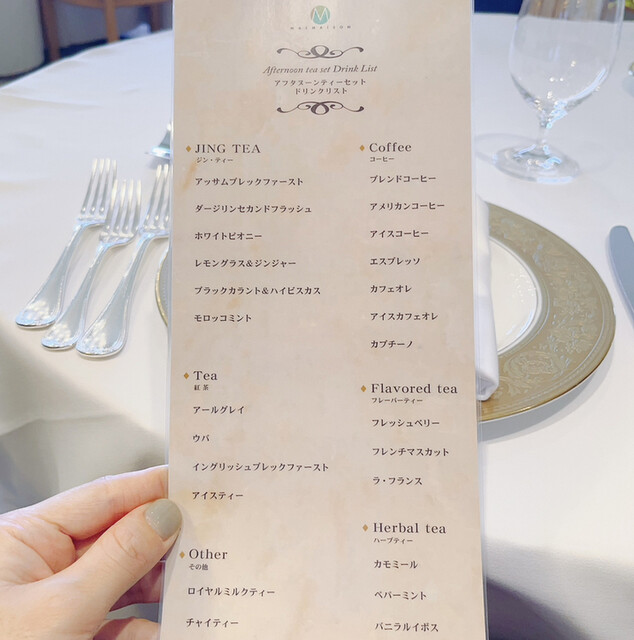 M
MALMAISON
Afternoon tea set Drink List
アフタヌーンティーセット
ドリンクリスト
JING TEA
ジン・ティー
アッサムブレックファースト
ダージリンセカンドフラッシュ
ホワイトピオニー
レモングラス&ジンジャー
ブラックカラント&ハイビスカス
モロッコミント
Tea
紅 茶
アールグレイ
ウバ
イングリッシュブレックファースト
アイスティー
Other
その他
ロイヤルミルクティー
チャイティー
Coffee
コーヒー
ブレンドコーヒー
アメリカンコーヒー
アイスコーヒー
エスプレッソ
カフェオレ
アイスカフェオレ
カプチーノ
Flavored tea
フレーバーティー
フレッシュベリー
フレンチマスカット
ラ・フランス
Herbal tea
ハーブティー
カモミール
ペパーミント
バニラルイボス